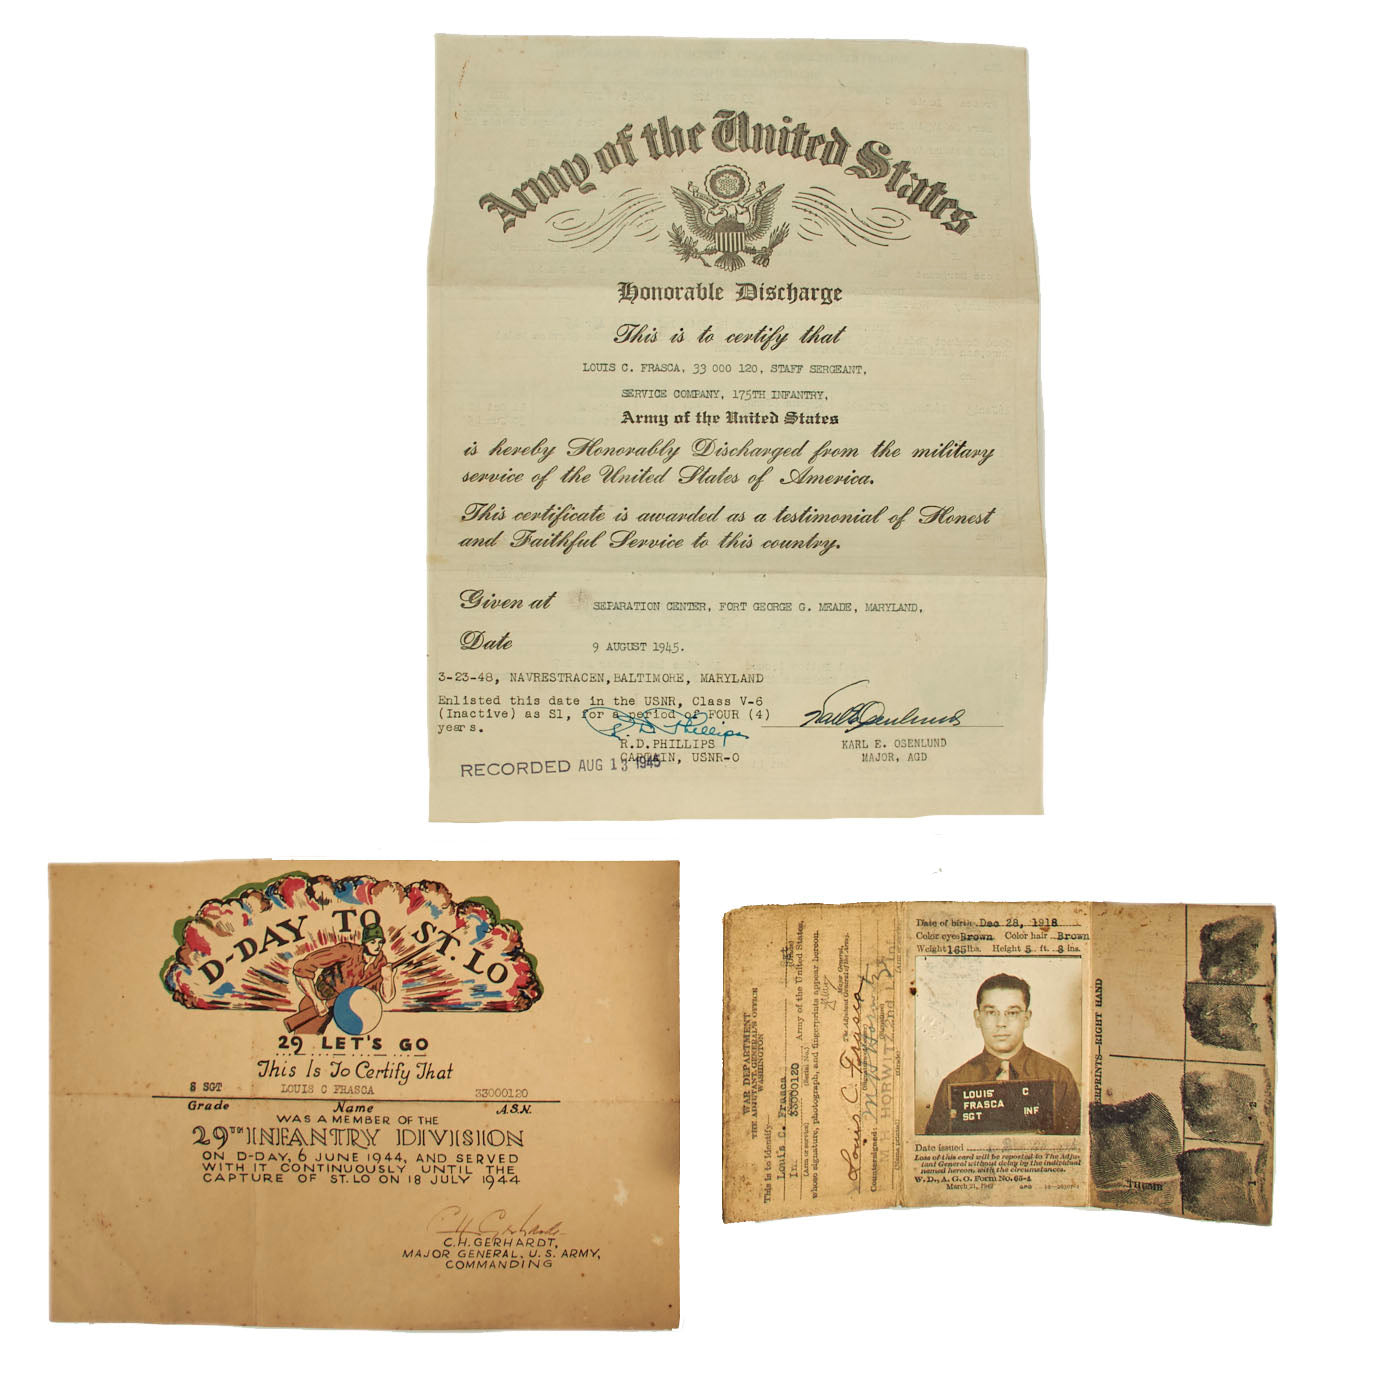 Army of the United States
Honorable Discharge
This is to certify that
LOUIS C. FRASCA, 33 000 120, STAFF SERGEANT,
SERVICE COMPANY, 175TH INFANTRY,
Army of the United States
is hereby Honorably Discharged from the military
service of the United States of America.
This certificate is awarded as a testimonial of Honest
and Faithful Service to this country.
Given at SEPARATION CENTER, FORT GEORGE G. MEADE, MARYLAND,
Date 9 AUGUST 1945.
3-23-48, NAVRESTRACEN, BALTIMORE, MARYLAND
Enlisted this date in the USNR, Class V-6
(Inactive) as S1, for a period of FOUR (4)
years.
R. D. Phillips
R.D.PHILLIPS
CAPTAIN, USNR-O
Karl E Osenlund
KARL E. OSENLUND
MAJOR, AGD
RECORDED AUG 13 1945
D-DAY TO ST. LO
29 LET'S GO
This Is To Certify That
S SGT LOUIS C FRASCA 33000120
Grade Name A.S.N.
WAS A MEMBER OF THE
29TH INFANTRY DIVISION
ON D-DAY, 6 JUNE 1944, AND SERVED
WITH IT CONTINUOUSLY UNTIL THE
CAPTURE OF ST. LO ON 18 JULY 1944
C H Gerhardt
C.H. GERHARDT,
MAJOR GENERAL, U. S. ARMY,
COMMANDING
WAR DEPARTMENT
THE ADJUTANT GENERAL'S OFFICE
WASHINGTON
This is to Identify—
Louis C. Frasca
(Grade)
Inf 33000120 Army of the United States,
(Arm or service) (Serial No.)
whose signature, photograph, and fingerprints appear hereon.
Major General,
The Adjutant General of the Army.
Louis C. Frasca
(Signature)
Countersigned:
M H HORWITZ 2nd Lt Inf
Date of birth Dec 28, 1918
Color eyes Brown Color hair Brown
Weight 165 lbs. Height 5 ft. 8 ins.
LOUIS C
FRASCA
SGT INF
Date issued
Loss of this card will be reported to The Adju-
tant General without delay by the individual
named hereon, with the circumstances.
W. D., A. G. O. Form No. 65-4
March 21, 1942 GPO
FINGERPRINTS—RIGHT HAND
THUMB
1
2